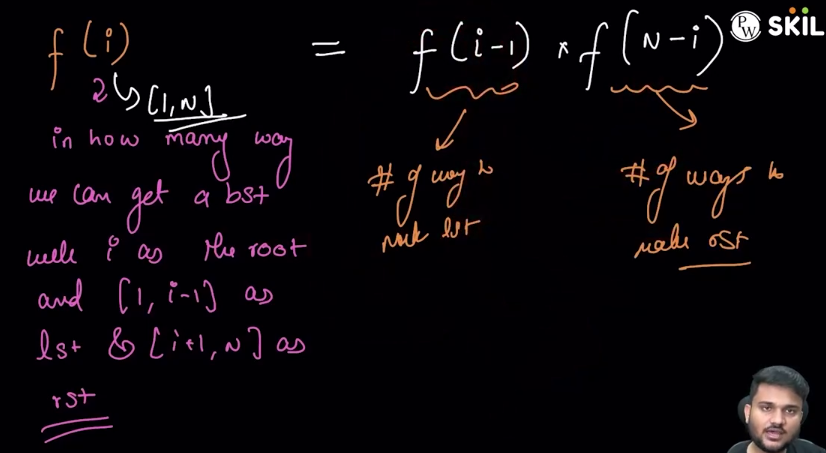 f(i) = f(i-1) * f(N-i)
2 [1,N]
in how many way
we can get a bst
with i as the root
and [1, i-1] as
lst & [i+1, N] as
rst
# of way to
make lst
# of ways to
make rst
PW SKIL